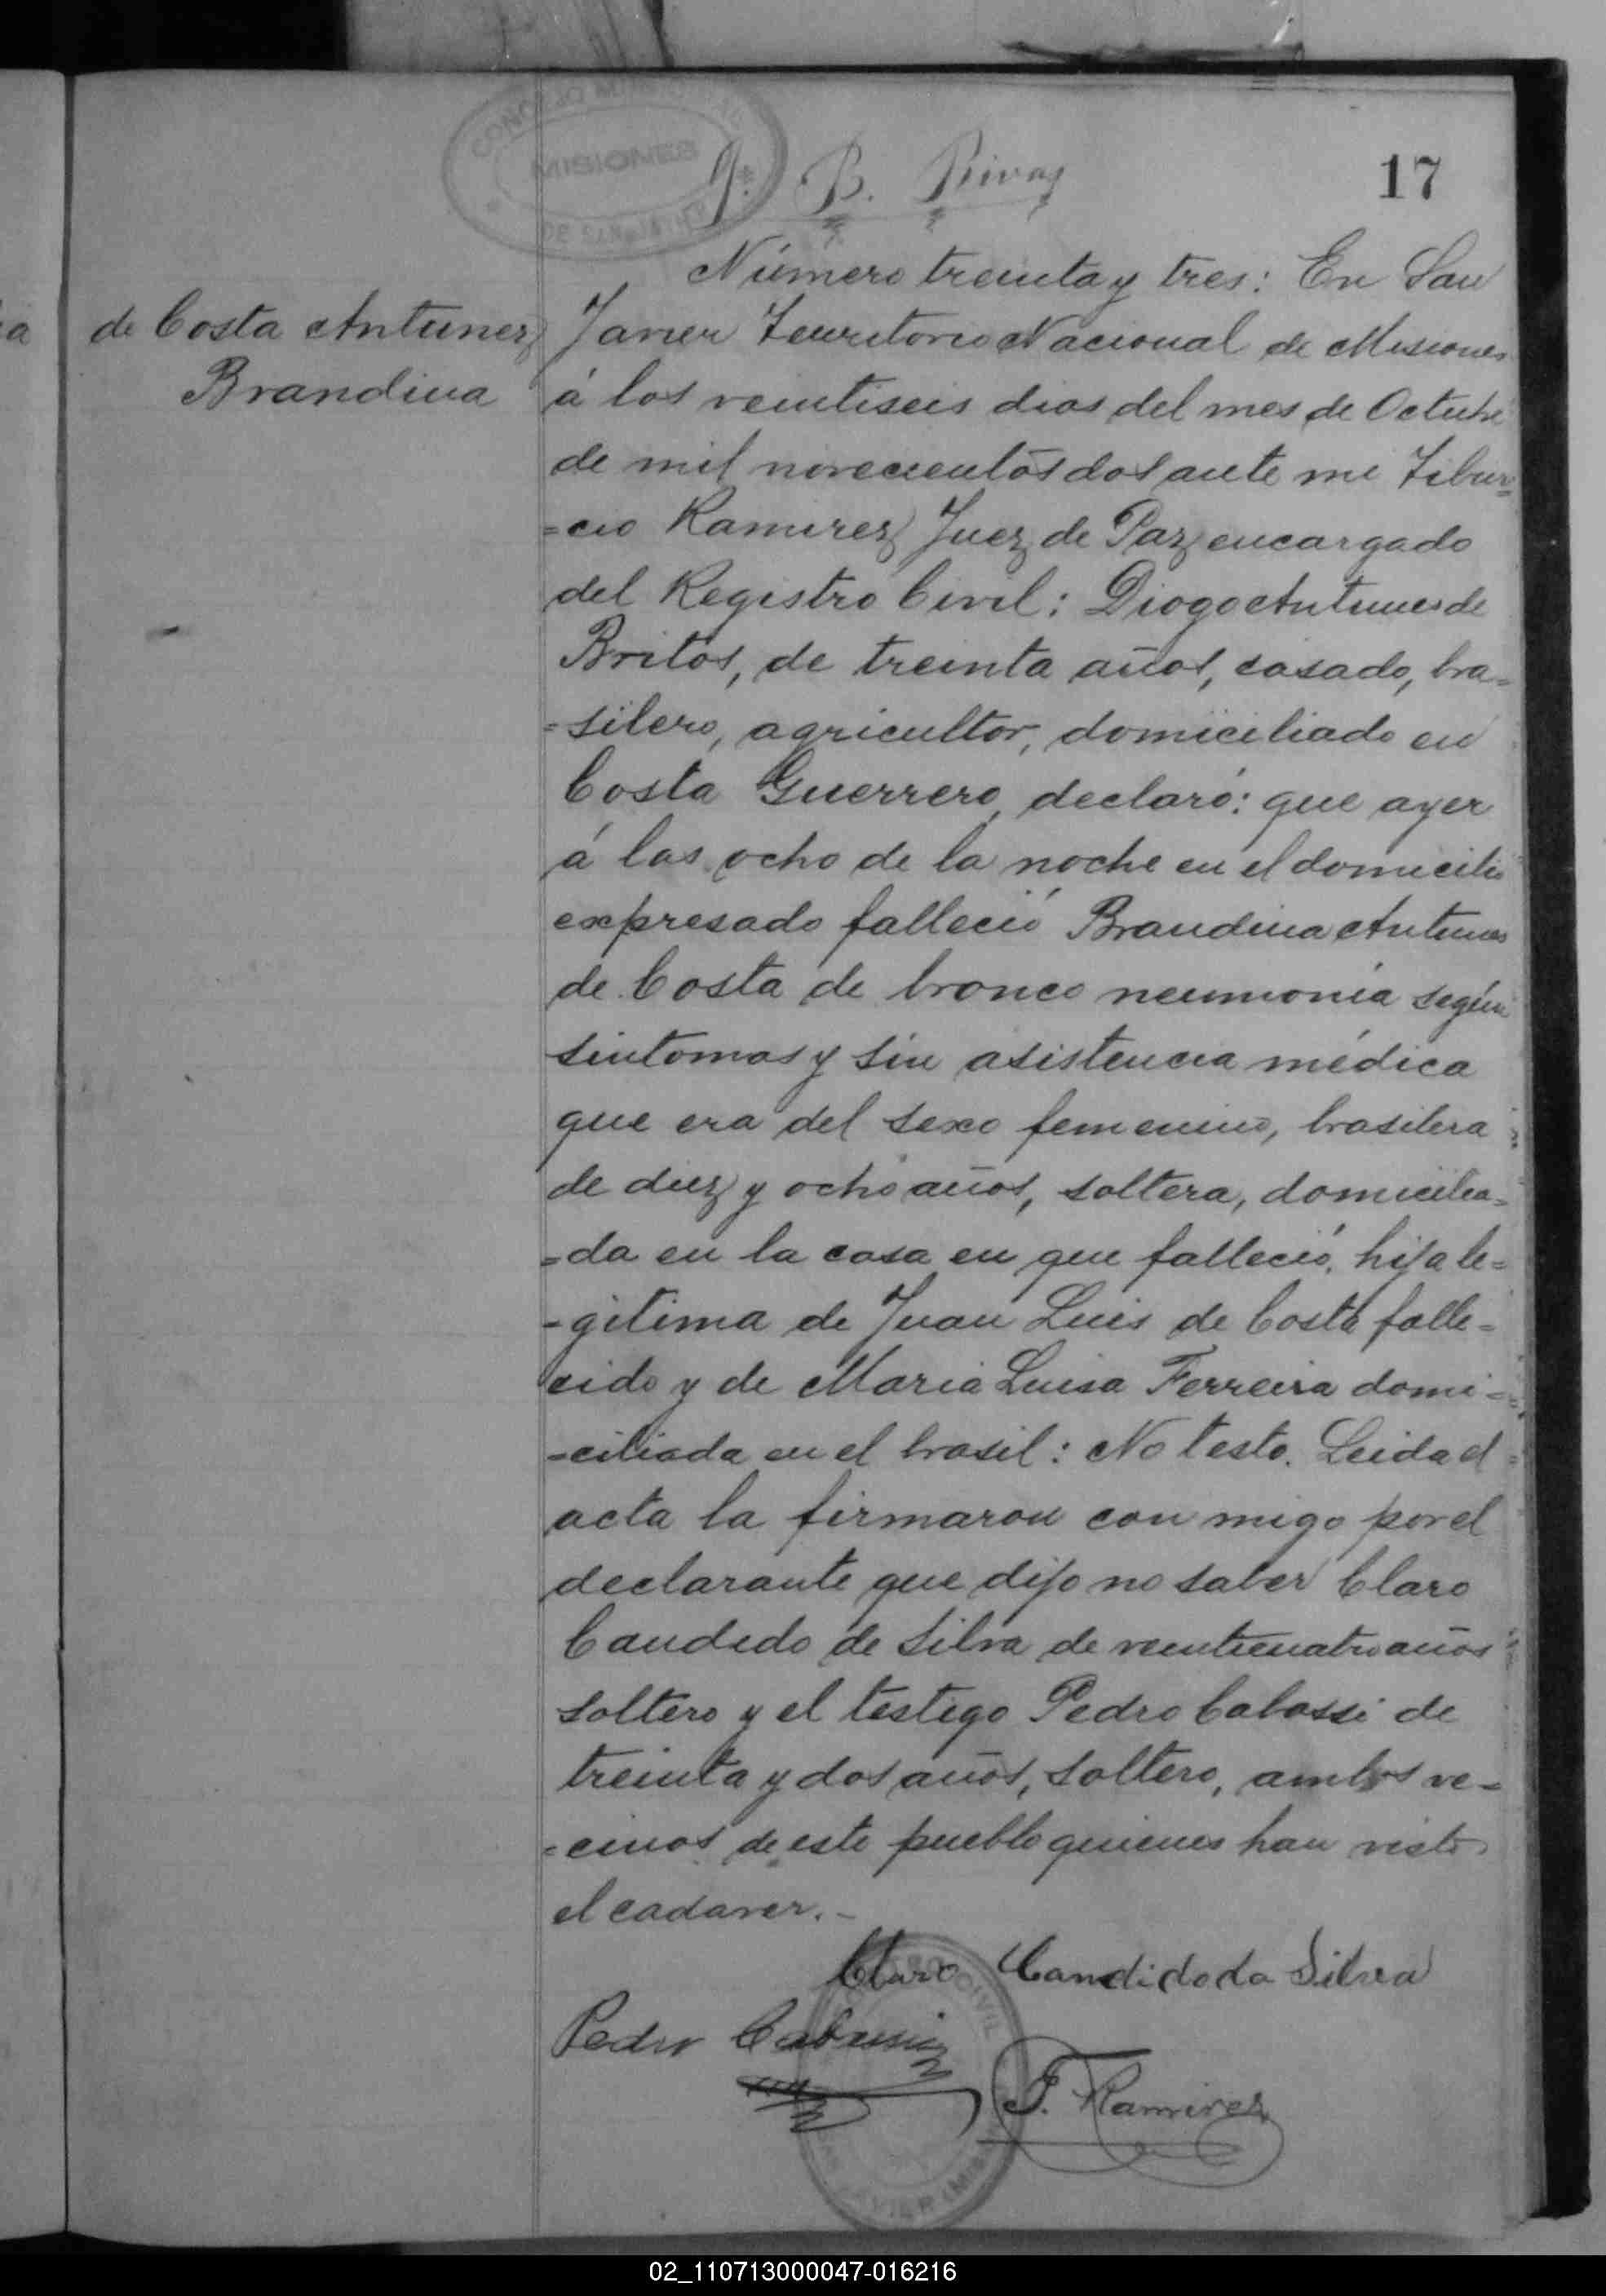 CONCEJO MUNICIPAL
MISIONES
B. Rivas
17
de Costa Antunez
Brandina
Número treinta y tres: En San
Javier Territorio Nacional de Misiones
á los veintiseis dias del mes de Octubre
de mil novecientos dos ante mi Tibur=
=cio Ramirez Juez de Paz encargado
del Registro Civil: Diogo Antunes de
Britos, de treinta años, casado, bra=
=silero, agricultor, domiciliado en
Costa Guerrero, declaró: que ayer
á las ocho de la noche en el domicilio
expresado falleció Brandina Antunes
de Costa de bronco neumonia según
sintomas y sin asistencia médica
que era del sexo femenino, brasilera
de diez y ocho años, soltera, domicilia=
=da en la casa en que falleció, hija le=
=gitima de Juan Luis de Costa falle=
cido y de Maria Luisa Ferreira domi=
=ciliada en el brasil: No testo. Leida el
acta la firmaron con migo por el
declarante que dijo no saber Claro
Candido de Silva de veinticuatro años
soltero y el testigo Pedro Cabassi de
treinta y dos años, soltero, ambos ve=
=cinos de este pueblo quienes han visto
el cadaver.-
Claro Candido da Silva
Pedro Cabassi
T. Ramirez
02_110713000047-016216